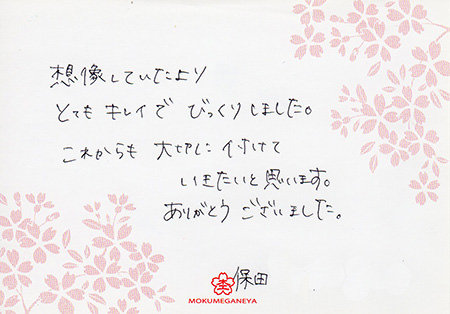 想像していたより
とても キレイで びっくりしました。
これからも 大切に 付けて
いきたいと思います。
ありがとう ございました。
保田
MOKUMEGANEYA